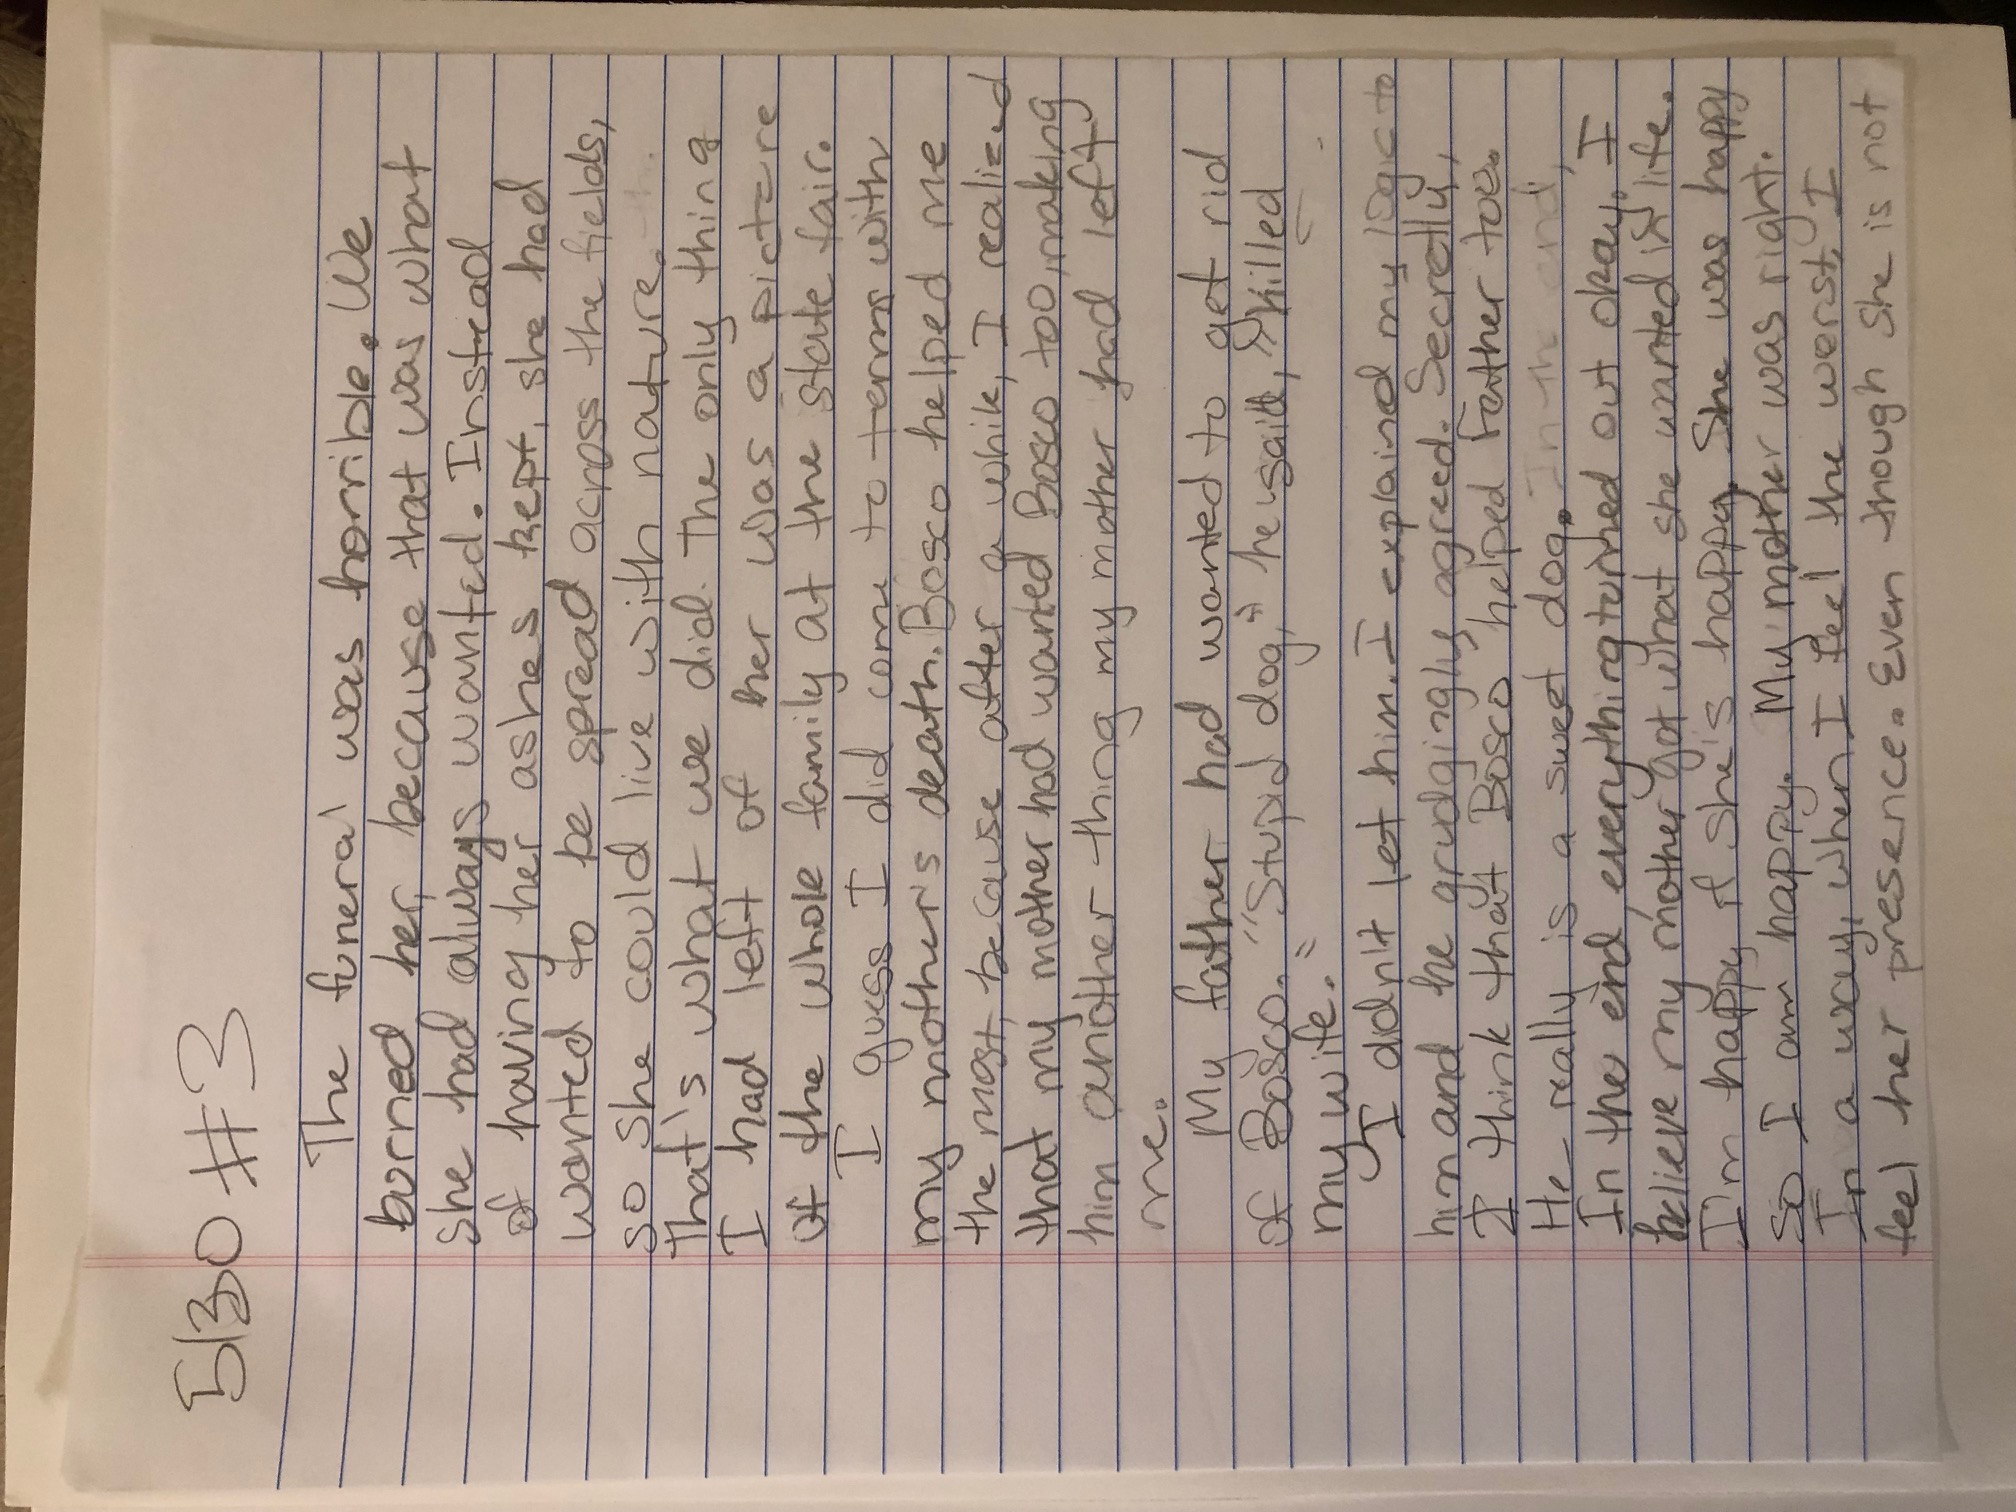 5/30 #3
The funeral was horrible. We
burned her, because that was what
she had always wanted. Instead
of having her ashes kept, she had
wanted to be spread across the fields,
so she could live with nature.
That's what we did. The only thing
I had left of her was a picture
of the whole family at the state fair.
I guess I did come to terms with
my mother's death. Bosco helped me
the most, because after a while, I realized
that my mother had wanted Bosco too, making
him another thing my mother had left
me.
My father had wanted to get rid
of Bosco. "Stupid dog," he said, "killed
my wife."
I didn't let him. I explained my logic to
him and he grudgingly agreed. Secretly,
I think that Bosco helped Father too.
He really is a sweet dog. In the end,
In the end, everything turned out okay. I
believe my mother got what she wanted in life.
I'm happy if she's happy. She was happy
so I am happy. My mother was right.
In a way, when I feel the worst, I
feel her presence. Even though she is not